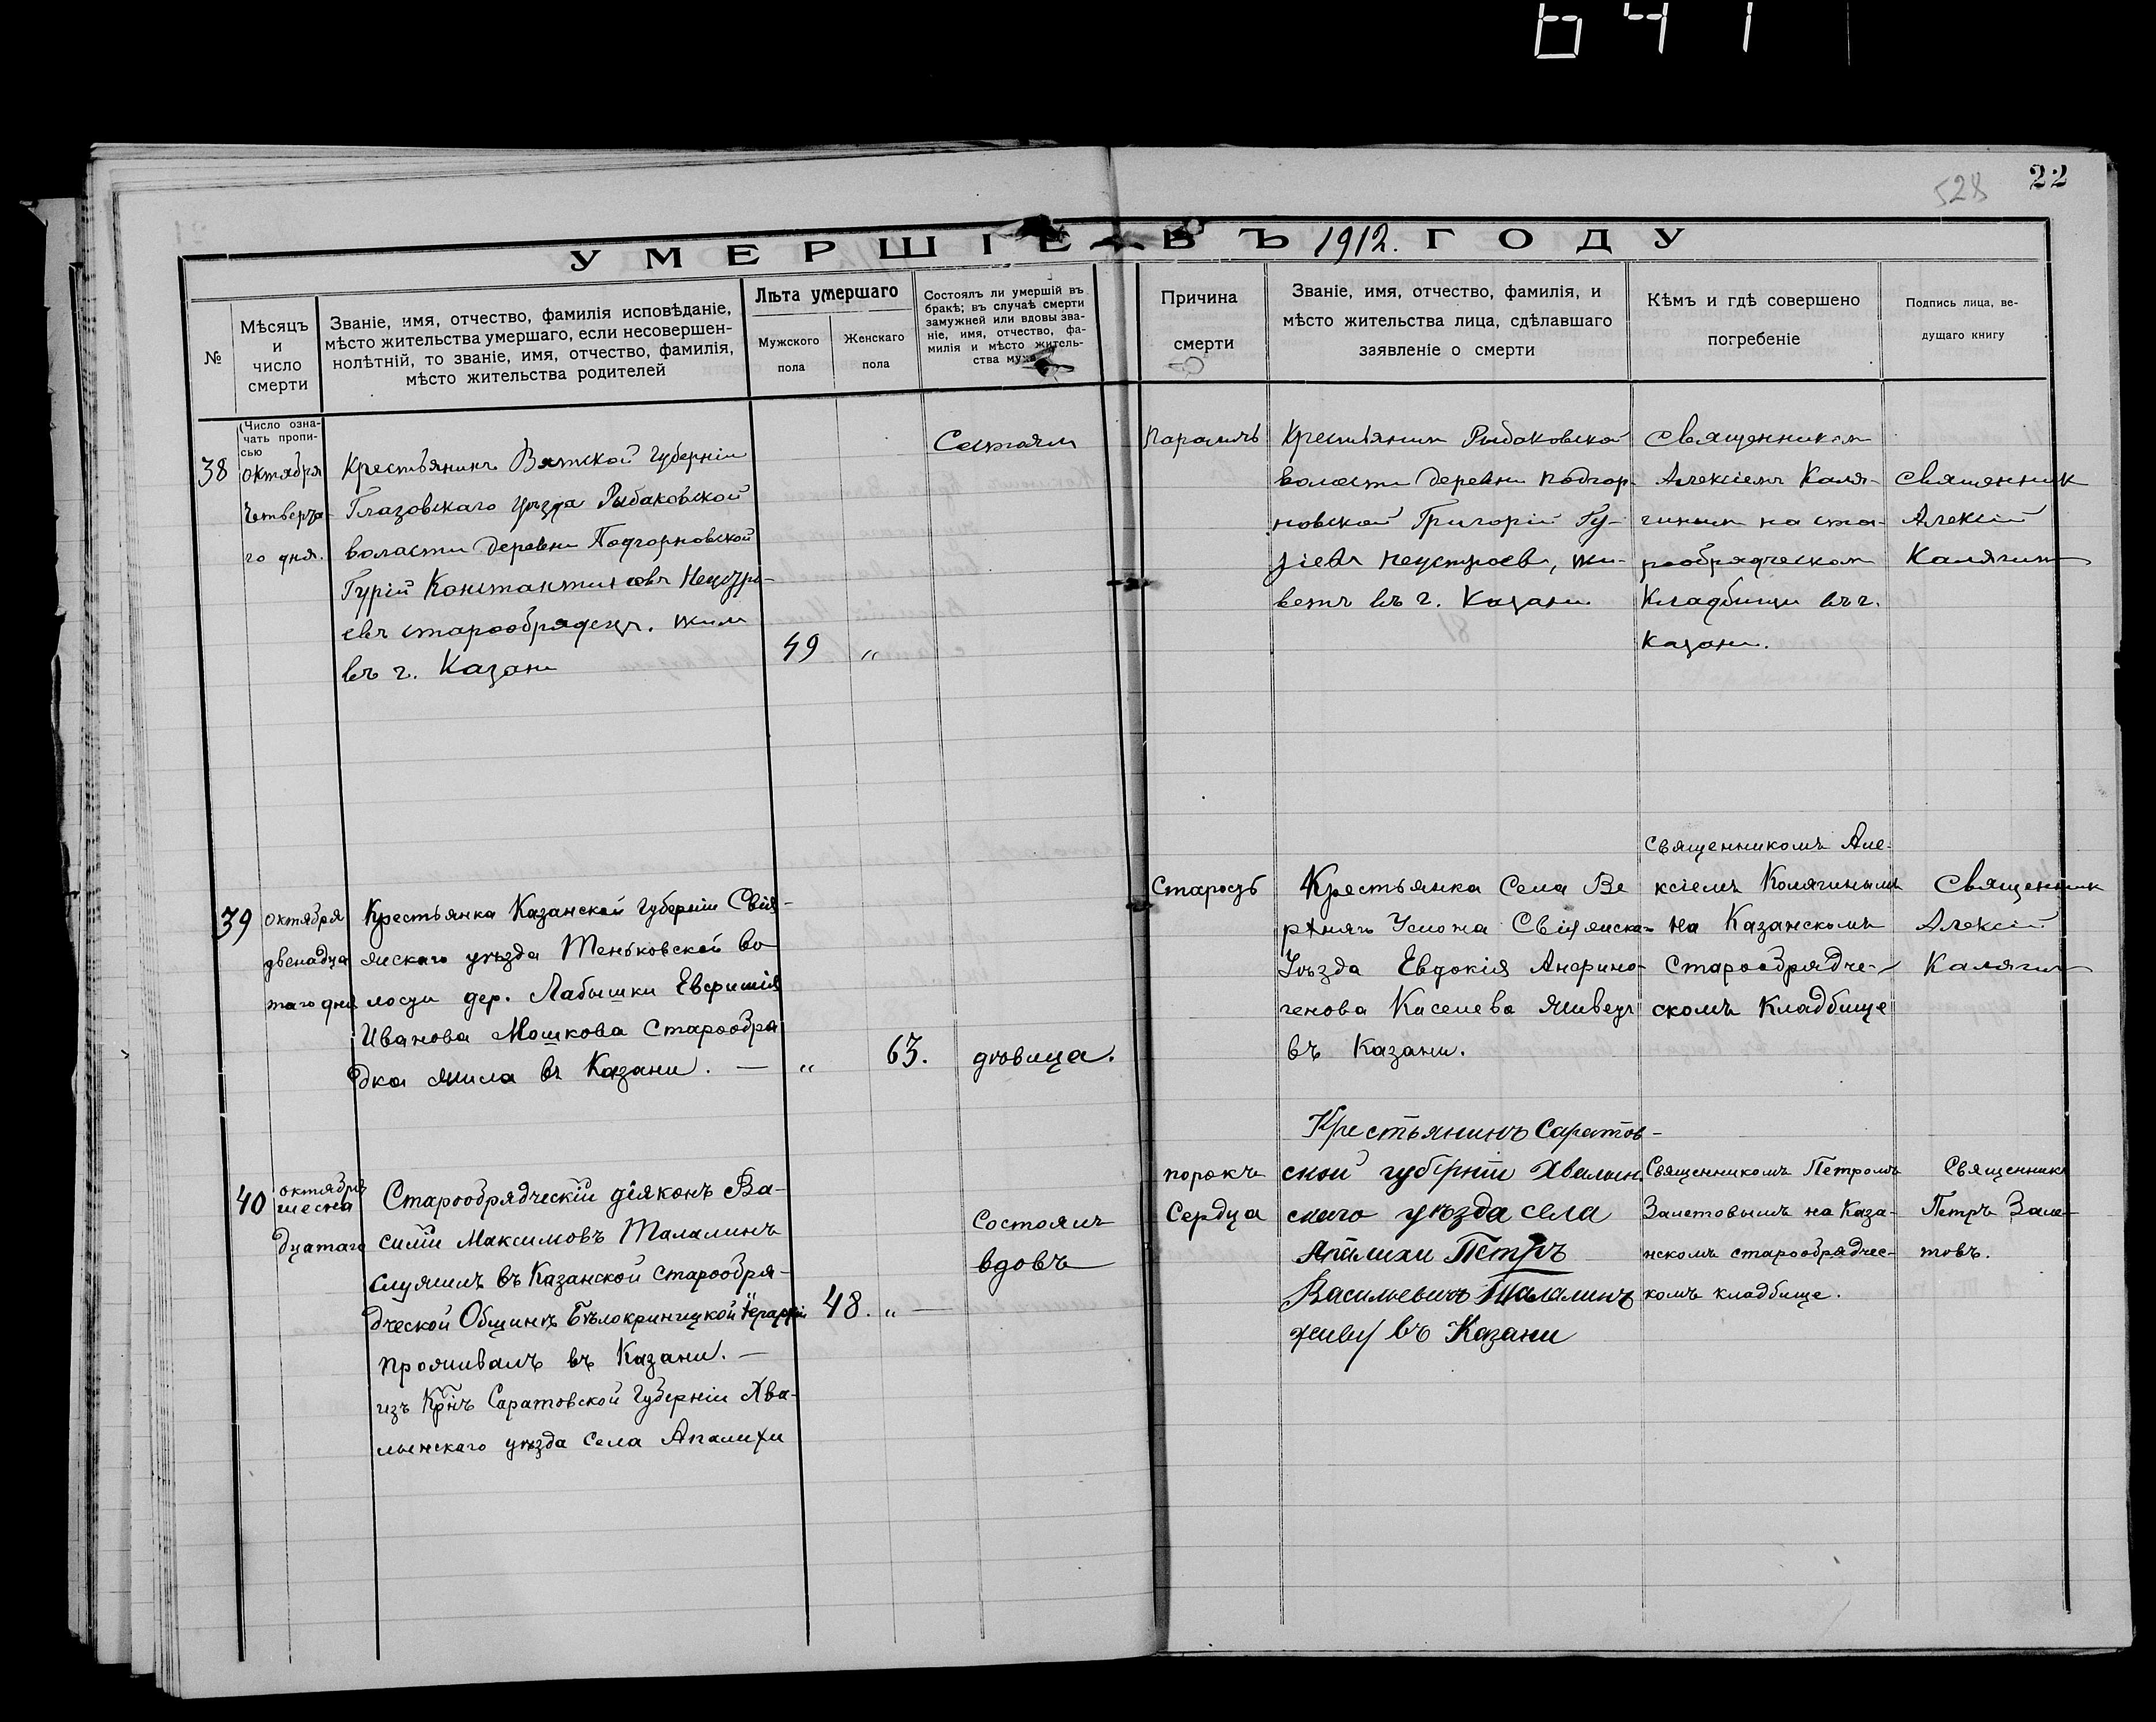 641
528
22
УМЕРШІЕ ВЪ 1912. ГОДУ
№
Мѣсяцъ
и
число
смерти
Званіе, имя, отчество, фамилія исповѣданіе,
мѣсто жительства умершаго, если несовершен-
нолѣтній, то званіе, имя, отчество, фамилія,
мѣсто жительства родителей
Лѣта умершаго
Мужского
пола
Женскаго
пола
Состоялъ ли умершій въ
бракѣ; въ случаѣ смерти
замужней или вдовы зва-
ніе, имя, отчество, фа-
милія и мѣсто житель-
ства мужа
Причина
смерти
Званіе, имя, отчество, фамилія, и
мѣсто жительства лица, сдѣлавшаго
заявленіе о смерти
Кѣмъ и гдѣ совершено
погребеніе
Подпись лица, ве-
дущаго книгу
(Число озна-
чать пропи-
сью
38
октября
Четверта-
го дня.
Крестьянинъ Вятской губерніи
Глазовскаго уѣзда Рыбаковской
воласти деревни Подгорновской
Гурій Константиновъ Неустро-
евъ старообрядецъ. жил
въ г. Казани
49
"
Састоял
Параличъ
Крестьянин Рыбаковской
воласти деревни подгор-
новской Григорій Гу-
ріевъ Неустроев, жи-
ветъ въ г. Казани.
Священником
Алексіемъ Каля-
гиным на ста-
рообрядческом
Кладбищи въ г.
Казани.
Священник
Алексій
Калягин
39
октября
двенадца
таго дня
Крестьянка Казанской губерніи Свія-
жскаго уѣзда Теньковской во
лости дер. Лабышки Евфимія
Иванова Мошкова Старообря
дка жила въ Казани. —
"
63.
дковица.
Старость
Крестьянка Села Ве
рхняго Услона Свіяжска-
Уѣзда Евдокія Анфино-
генова Киселева живетъ
въ Казани.
Священникомъ Але-
ксіемъ Колягинымъ
На Казанскомъ
Старообрядче-
скомъ Кладбище
Священник
Алексій
Калягин
40
октября
шесна
дцатаго
Старообрядческій діяконъ Ва-
силій Максимовъ Талалинъ
служилъ въ Казанской старообря-
дческой Общинѣ Бѣлокриницкой іерархіи
проживалъ въ Казани. —
изъ Крнъ Саратовской Губерніи Хва-
лынскаго уѣзда Села Апалихи
48.
" —
Состоялъ
вдовъ
порокъ
Сердца
Крестьянинъ Саратов-
ской губерніи Хвалын.
скаго уѣзда села
Апалихи Петръ
Васильевичъ Талалинъ
живу въ Казани
Священникомъ Петромъ
Залетовымъ на Каза-
нскомъ старообрядчес-
комъ кладбище.
Священникъ
Петръ Зале-
товъ.